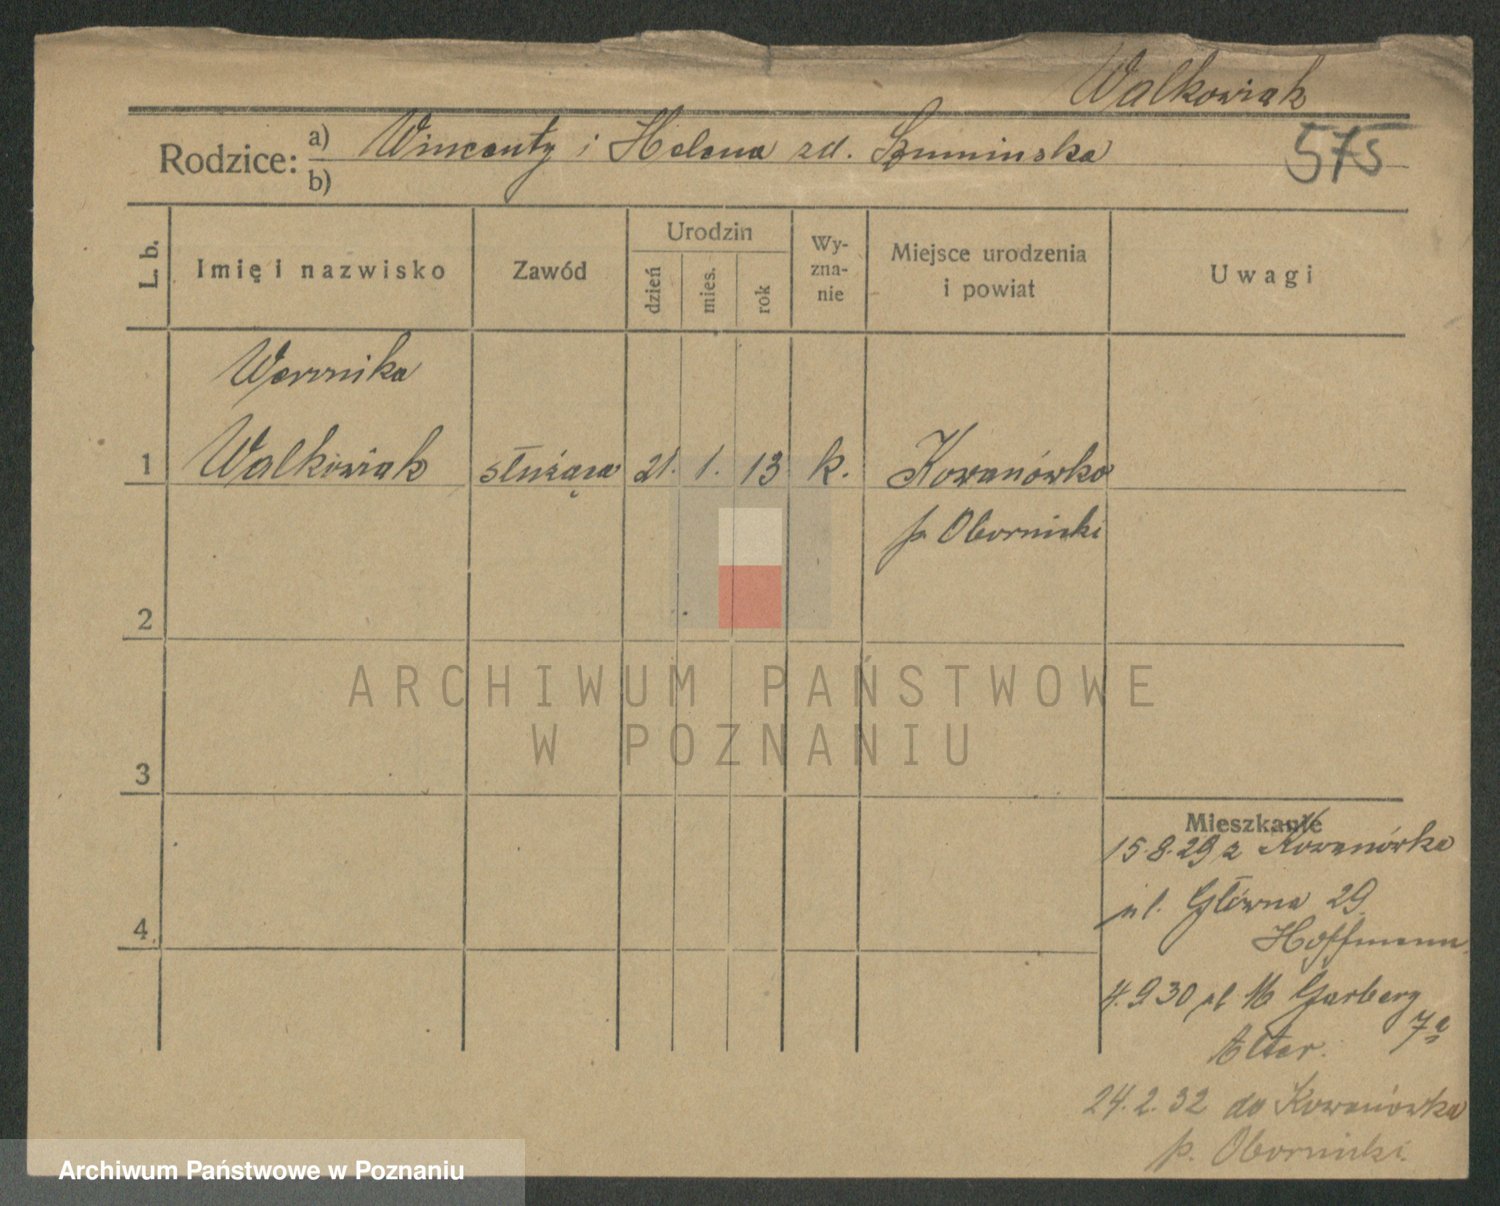 Walkowiak
575
Rodzice: a) Wincenty i Helena zd. Szuminska
b)
L. b.
Imię i nazwisko
Zawód
Urodzin
dzień
mies.
rok
Wy-
zna-
nie
Miejsce urodzenia
i powiat
Uwagi
Weronika
1 Walkowiak służąca 21. 1. 13 k. Kowanówko
p. Obornicki
2
3
4
Mieszkanie
15.8.29 z Kowanówka
ul. Główna 29
Hoffmann
4.9.30 ul. W Garbary
7a
24.2.32 do Kowanówka
p. Obornicki.
ARCHIWUM PAŃSTWOWE
W POZNANIU
Archiwum Państwowe w Poznaniu